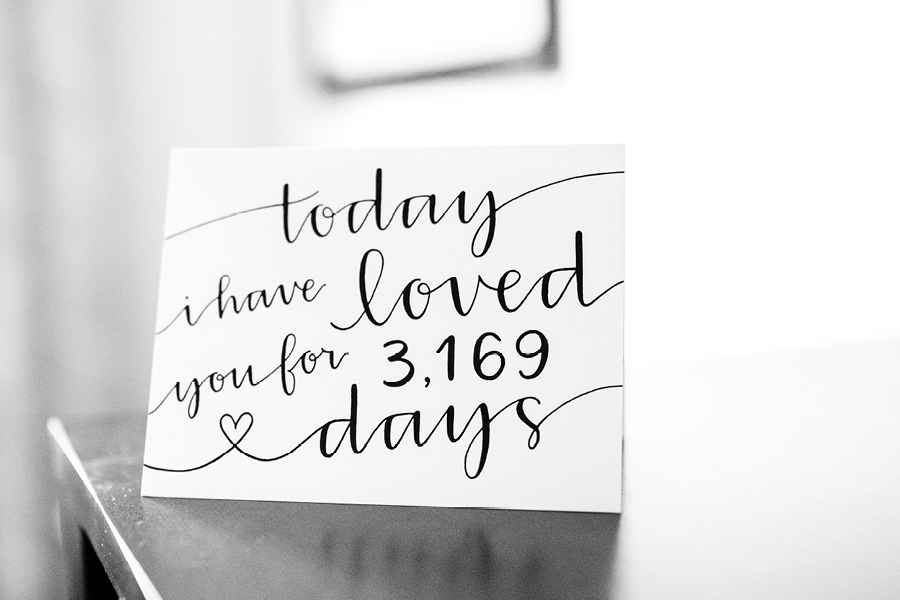 today
i have loved
you for 3,169
days